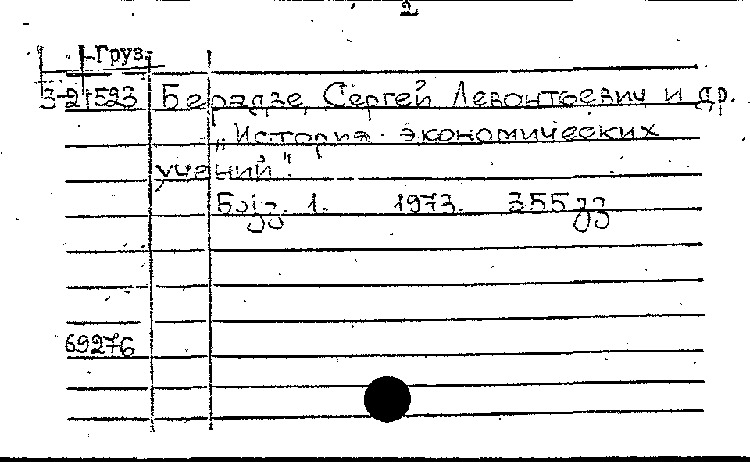 2
Груз.
3-21523 Берадзе, Сергей Левонтьевич и др.
„История экономических
учений".
1. 1973. 355 გვ
69276